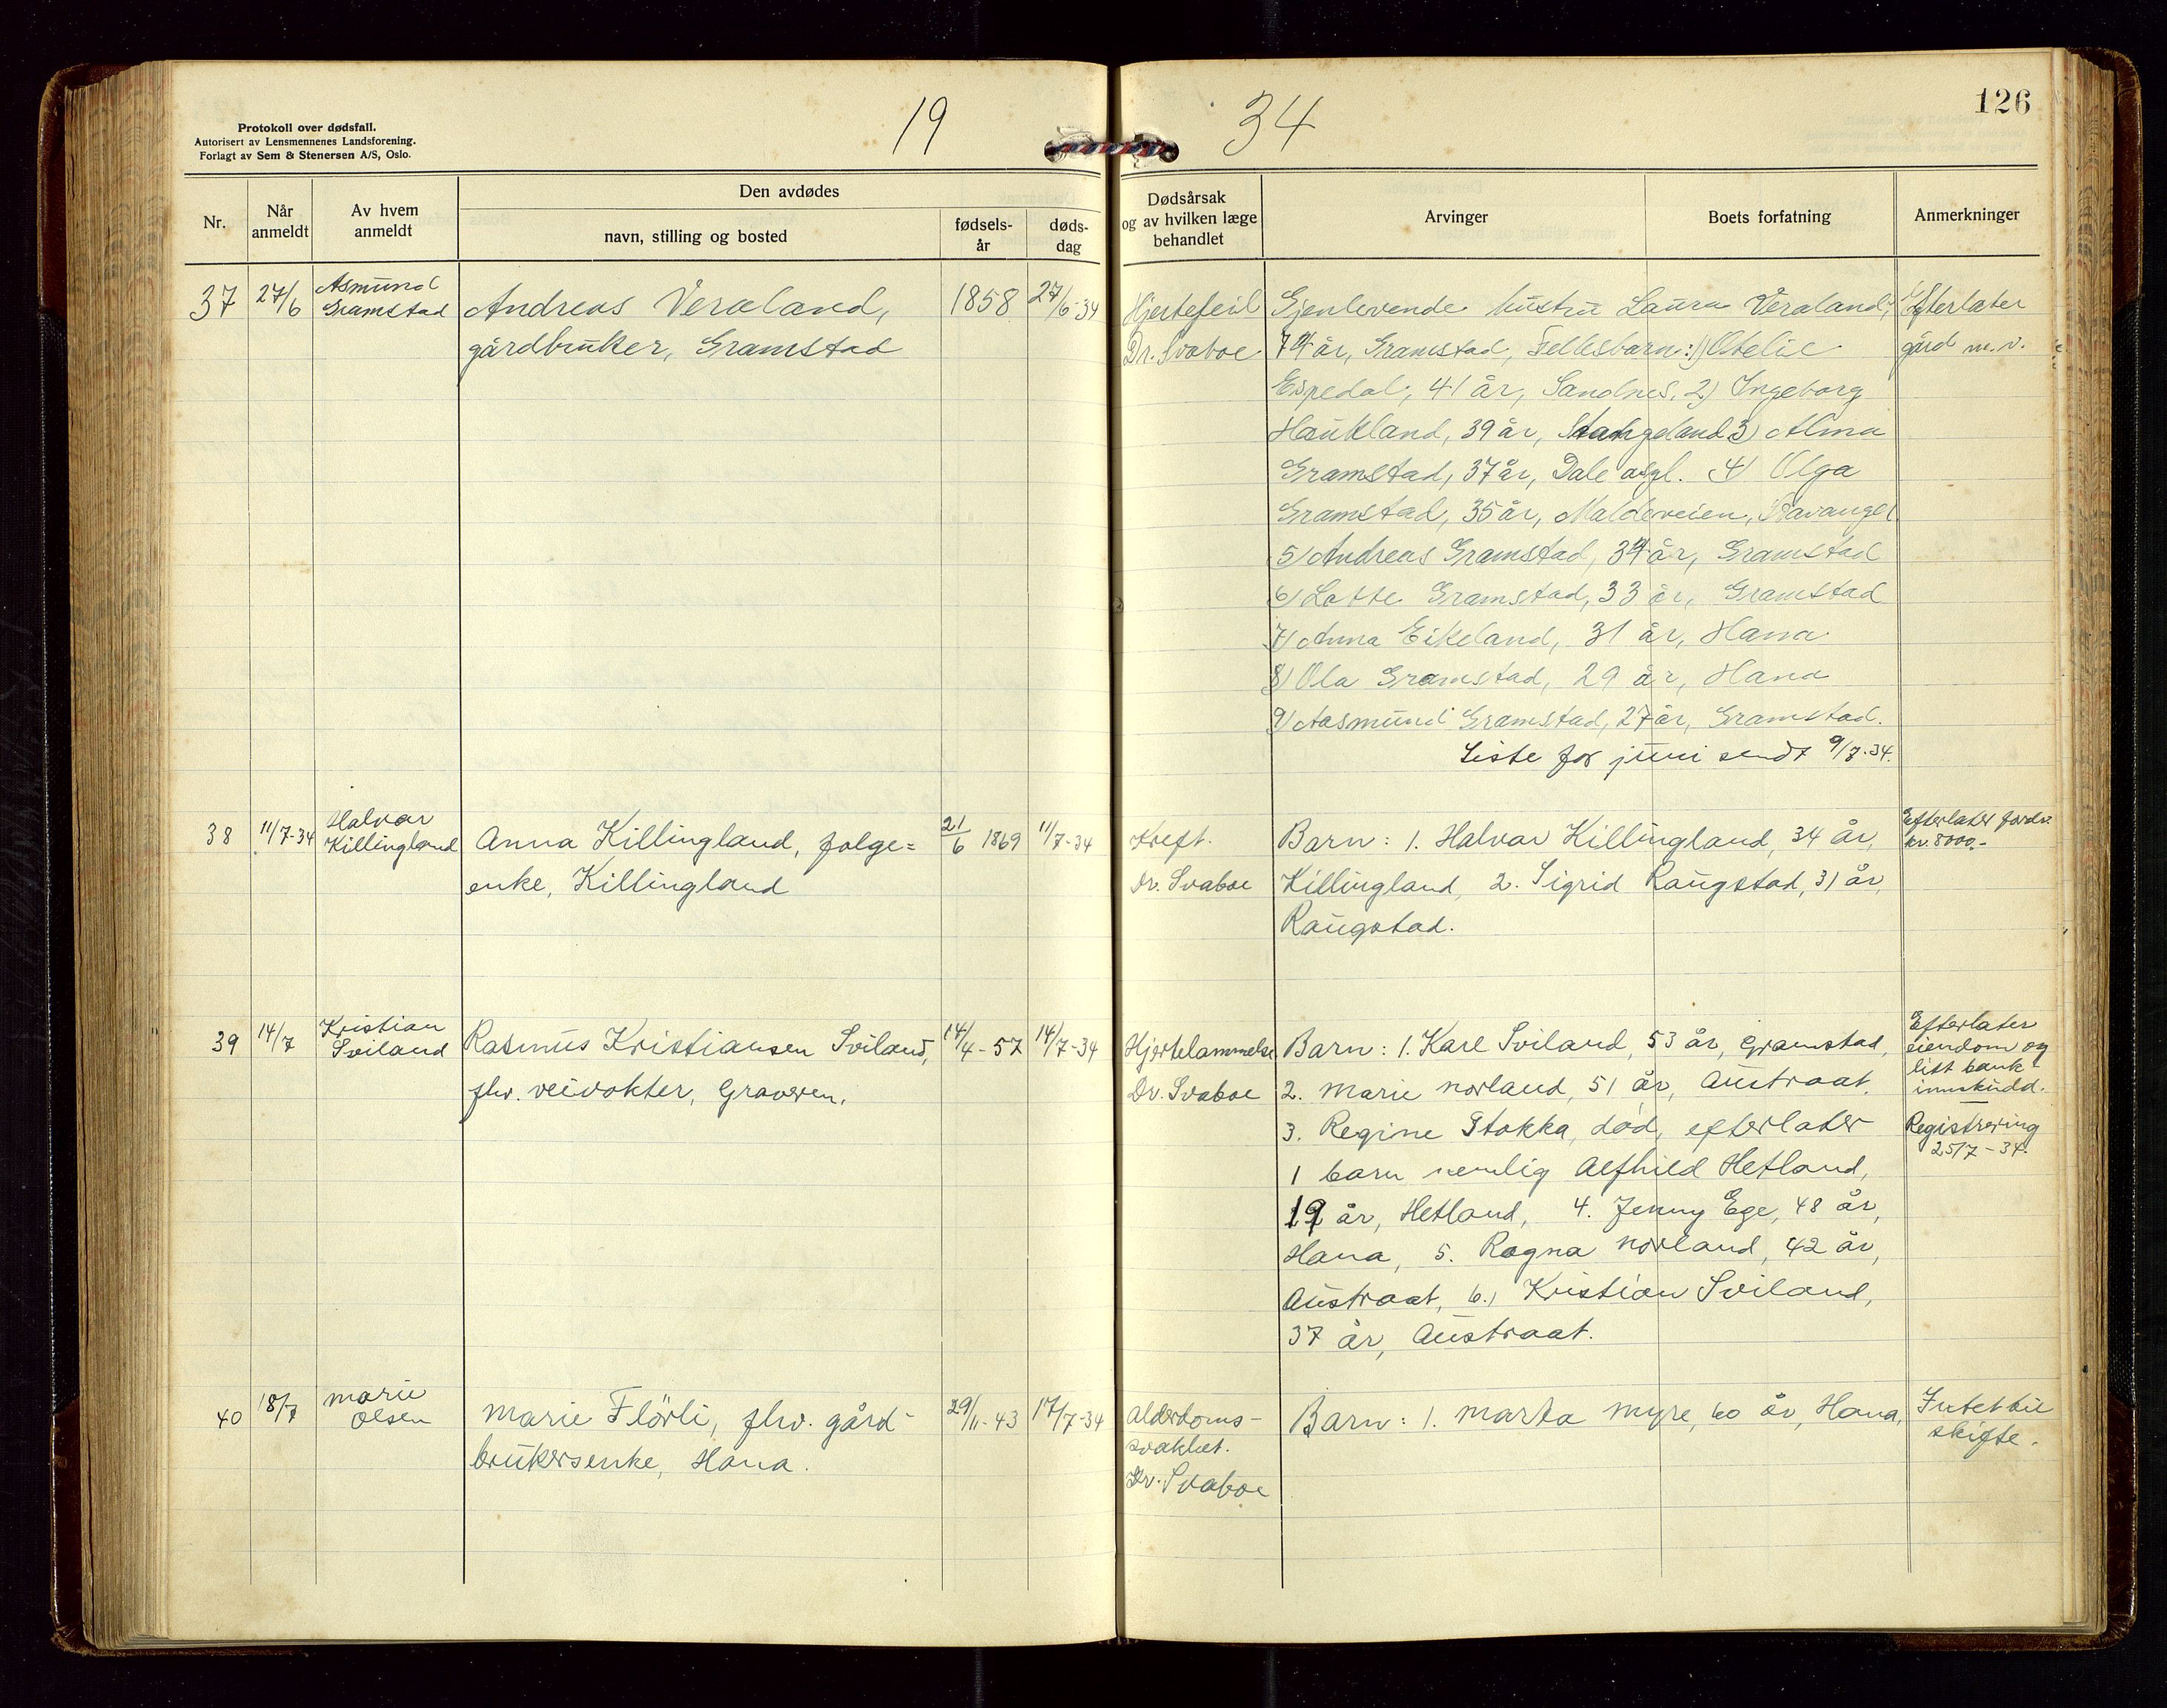 Protokoll over dødsfall.
Autorisert av Lensmennenes Landsforening.
Forlagt av Sem & Stenersen A/S, Oslo.
19
34
126
Nr.
Når
anmeldt
Av hvem
anmeldt
Den avdødes
navn, stilling og bosted
fødsels-
år
døds-
dag
Dødsårsak
og av hvilken læge
behandlet
Arvinger
Boets forfatning
Anmerkninger
37
27/6
Asmund
Gramstad
Andreas Veraland,
gårdbruker, Gramstad
1858
27/6-34
Hjertefeil
Dr. Svaboe
Gjenlevende hustru Laura Veraland,
74 år, Gramstad, Fellesbarn: 1) Otelie
Espedal, 41 år, Sandnes, 2) Ingeborg
Haukland, 39 år, Stangeland 3) Alma
Gramstad, 37 år, Dale asyl. 4) Olga
Gramstad, 35 år, Maldeveien, Stavanger
5) Andreas Gramstad, 34 år, Gramstad
6) Lotte Gramstad, 33 år, Gramstad
7) Anna Eikeland, 31 år, Hana
8) Ola Gramstad, 29 år, Hana
9) Aasmund Gramstad, 27 år, Gramstad.
Liste for juni sendt 9/7-34.
Efterlater
gård m.v.
38
11/7-34
Halvar
Killingland
Anna Killingland, folge=
enke, Killingland
21/6 1869
11/7-34
Kreft.
Dr. Svaboe
Barn: 1. Halvar Killingland, 34 år,
Killingland, 2. Sigrid Raugstad, 31 år,
Raugstad.
Efterlater fordr.
kr. 8000.-
39
14/7
Kristian
Sviland
Rasmus Kristiansen Sviland,
fhv. veivokter, Graveren.
14/4-57
14/7-34
Hjertelammelse
Dr. Svaboe
Barn: 1. Kare Sviland, 53 år, Gramstad,
2. Marie Norland, 51 år, Austraat.
3. Regine Stokka, død, efterlater
1 barn nemlig Alfhild Hetland,
19 år, Hetland, 4. Jenny Ege, 48 år,
Hana, 5. Ragna Norland, 42 år,
Austraat, 6.) Kristian Sviland,
37 år, Austraat.
Efterlater
eiendom og
litt bank-
innskudd.
Registrering
25/7-34.
40
18/7
Marie
Olsen
Marie Flörli, fhv. gård-
brukersenke, Hana.
29/11-43
17/7-34
Alderdoms-
svakhet.
Dr. Svaboe
Barn: 1. Marta Myre, 60 år, Hana.
Intet bu
skifte.